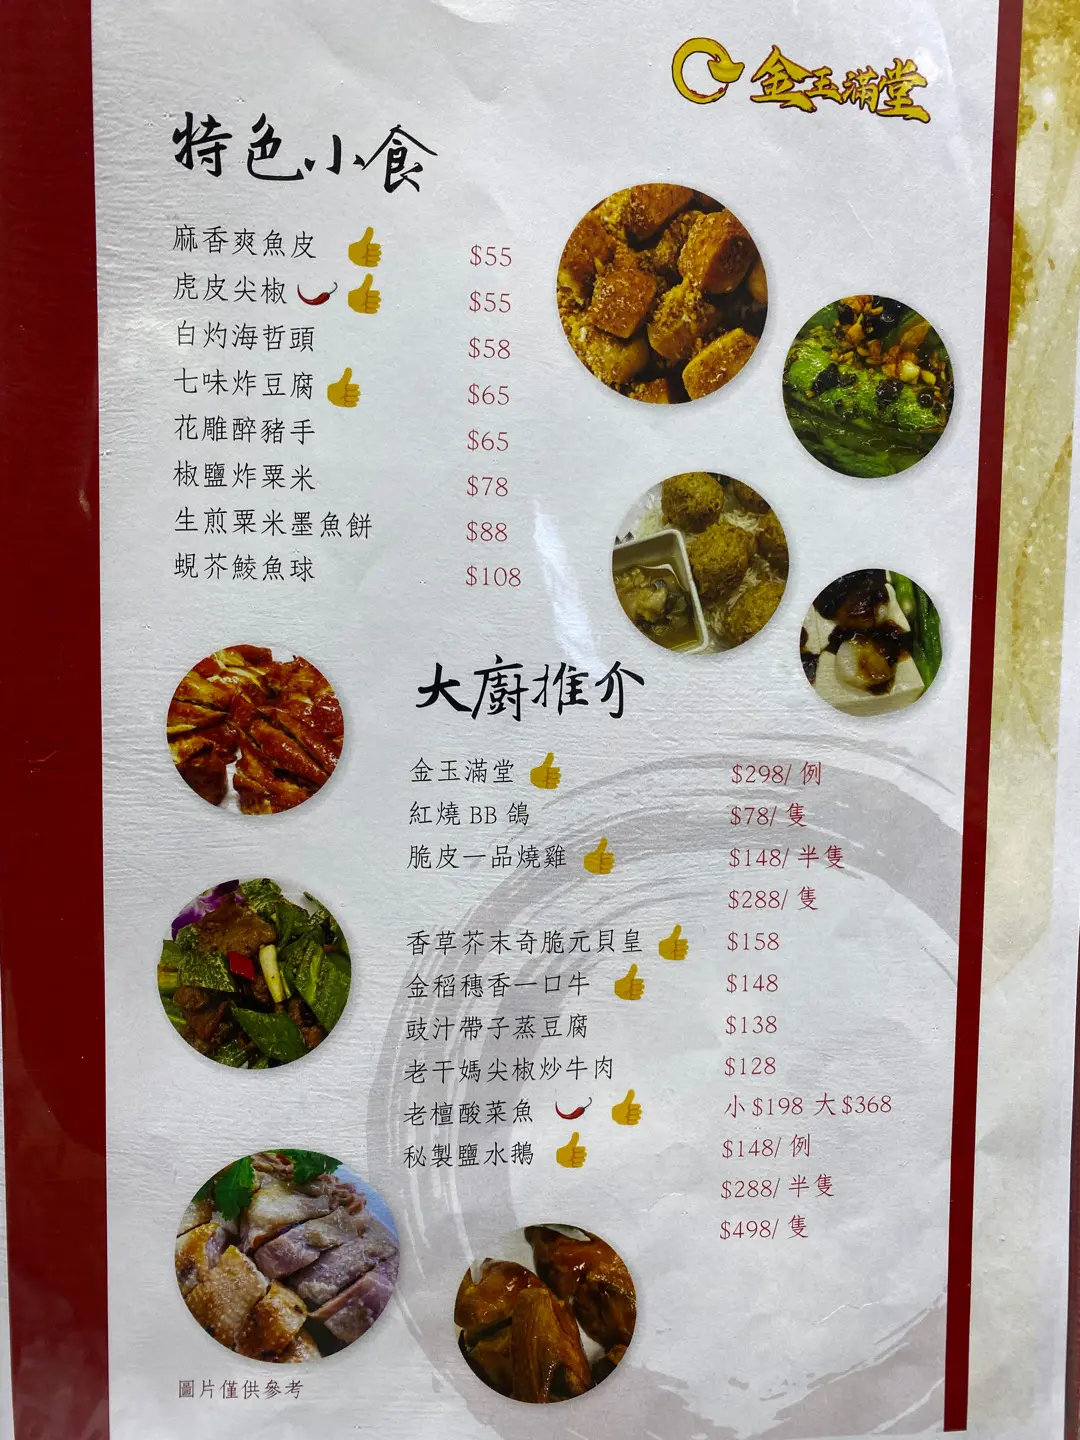 金玉滿堂
特色小食
麻香爽魚皮 $55
虎皮尖椒 $55
白灼海哲頭 $58
七味炸豆腐 $65
花雕醉豬手 $65
椒鹽炸粟米 $78
生煎粟米墨魚餅 $88
蜆芥鯪魚球 $108
大廚推介
金玉滿堂 $298/ 例
紅燒 BB 鴿 $78/ 隻
脆皮一品燒雞 $148/ 半隻
$288/ 隻
香草芥末奇脆元貝皇 $158
金稻穗香一口牛 $148
豉汁帶子蒸豆腐 $138
老干媽尖椒炒牛肉 $128
老檀酸菜魚 小 $198 大 $368
秘製鹽水鵝 $148/ 例
$288/ 半隻
$498/ 隻
圖片僅供參考